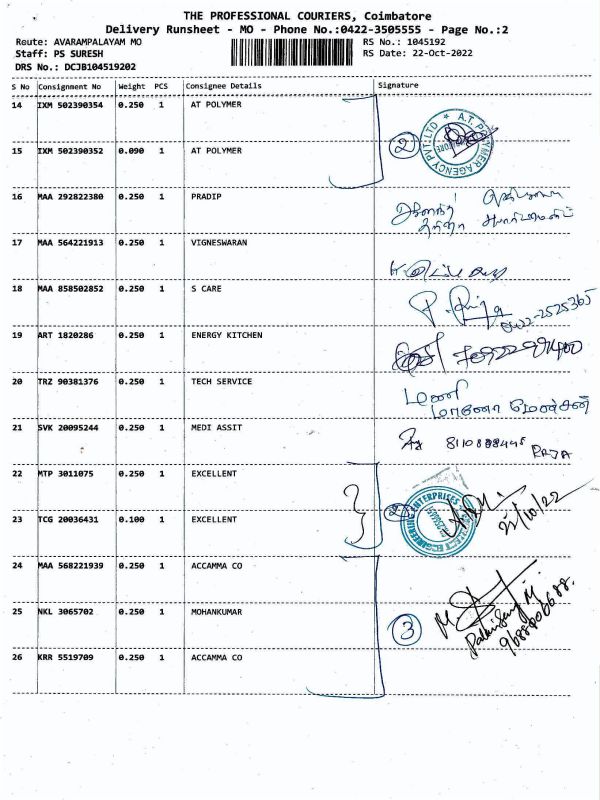 THE PROFESSIONAL COURIERS, Coimbatore
Delivery Runsheet - MO - Phone No.:0422-3505555 - Page No.:2
Route: AVARAMPALAYAM MO RS No.: 1045192
Staff: PS SURESH RS Date: 22-Oct-2022
DRS No.: DCJB104519202
S No Consignment No Weight PCS Consignee Details Signature
14 IXM 502390354 0.250 1 AT POLYMER
15 IXM 502390352 0.090 1 AT POLYMER
2 A.T. POLYMER AGENCY PVT. LTD
16 MAA 292822380 0.250 1 PRADIP
17 MAA 564221913 0.250 1 VIGNESWARAN
18 MAA 858502852 0.250 1 S CARE
0422-2525365
19 ART 1820286 0.250 1 ENERGY KITCHEN
20 TRZ 90381376 0.250 1 TECH SERVICE
மணி
21 SVK 20095244 0.250 1 MEDI ASSIT
RAJA
22 MTP 3011075 0.250 1 EXCELLENT
ENTERPRISES
23 TCG 20036431 0.100 1 EXCELLENT
22/10/22
24 MAA 568221939 0.250 1 ACCAMMA CO
25 NKL 3065702 0.250 1 MOHANKUMAR
3
26 KRR 5519709 0.250 1 ACCAMMA CO